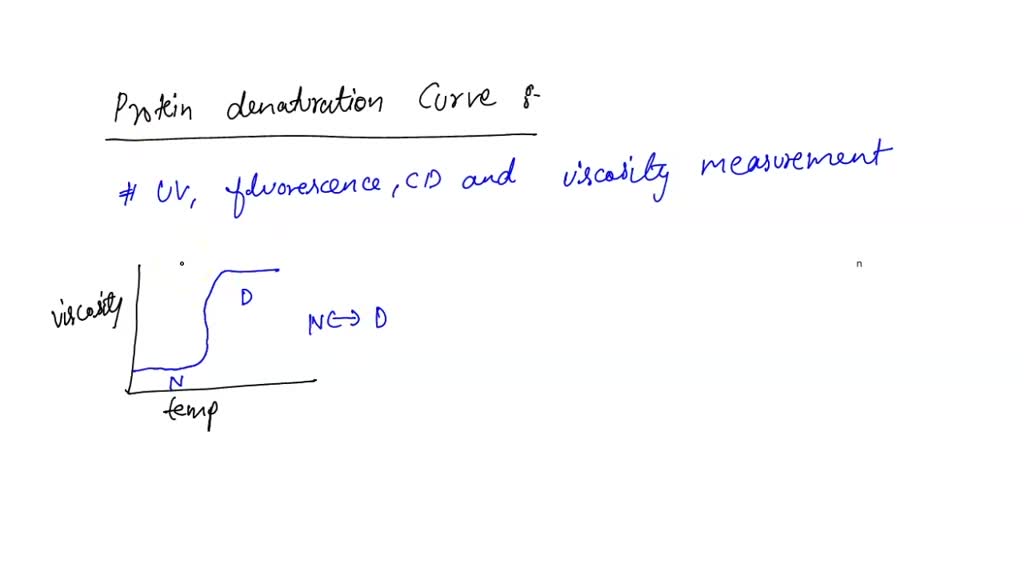 Protein denaturation Curve :-
# UV, fluorescence, CD and viscosity measurement
n
viscosity
D
N ↔ D
N
temp